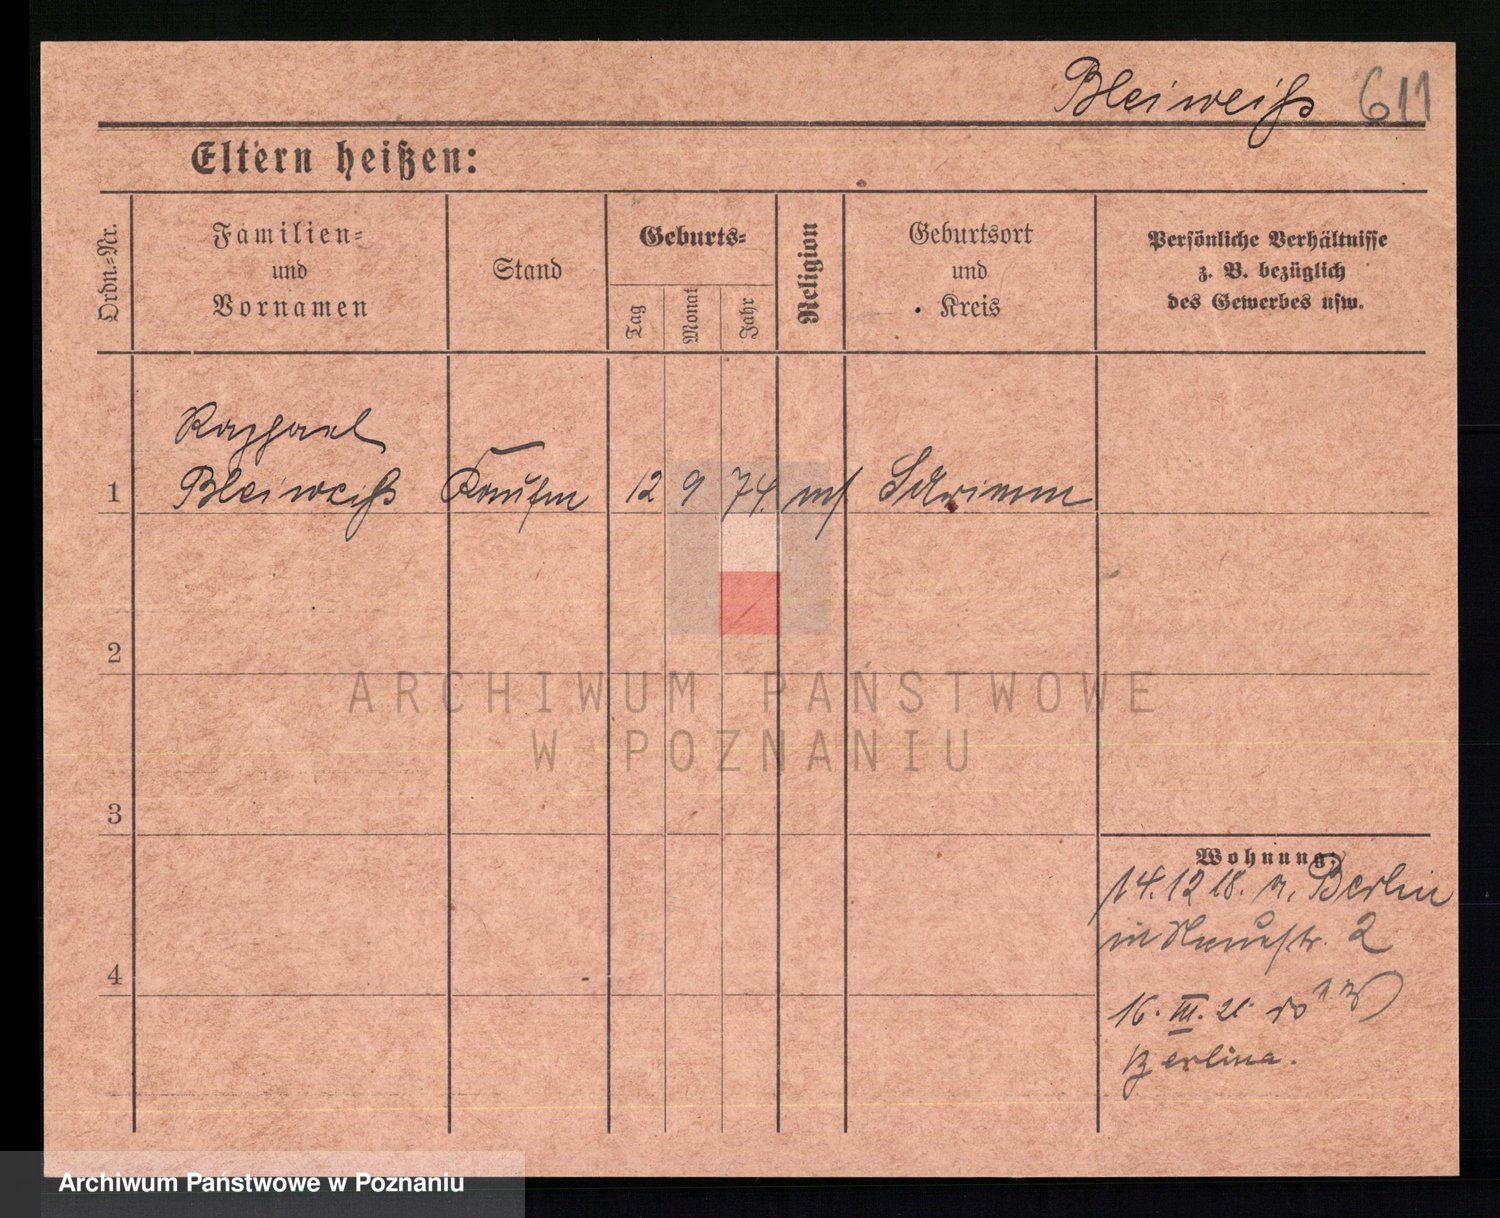 Bleiweiß 611
Eltern heißen:
Ordn.-Nr.
Familien-
und
Vornamen
Stand
Geburts-
Tag
Monat
Jahr
Religion
Geburtsort
und
Kreis
Persönliche Verhältnisse
z. B. bezüglich
des Gewerbes usw.
Raphael
1 Bleiweiß Kaufm 12 9 74. Schrimm
2
3
4
Wohnung:
14.12 18. v. Berlin
in 2
16. III. 21. do
Berlina.
ARCHIWUM PAŃSTWOWE
W POZNANIU
Archiwum Państwowe w Poznaniu